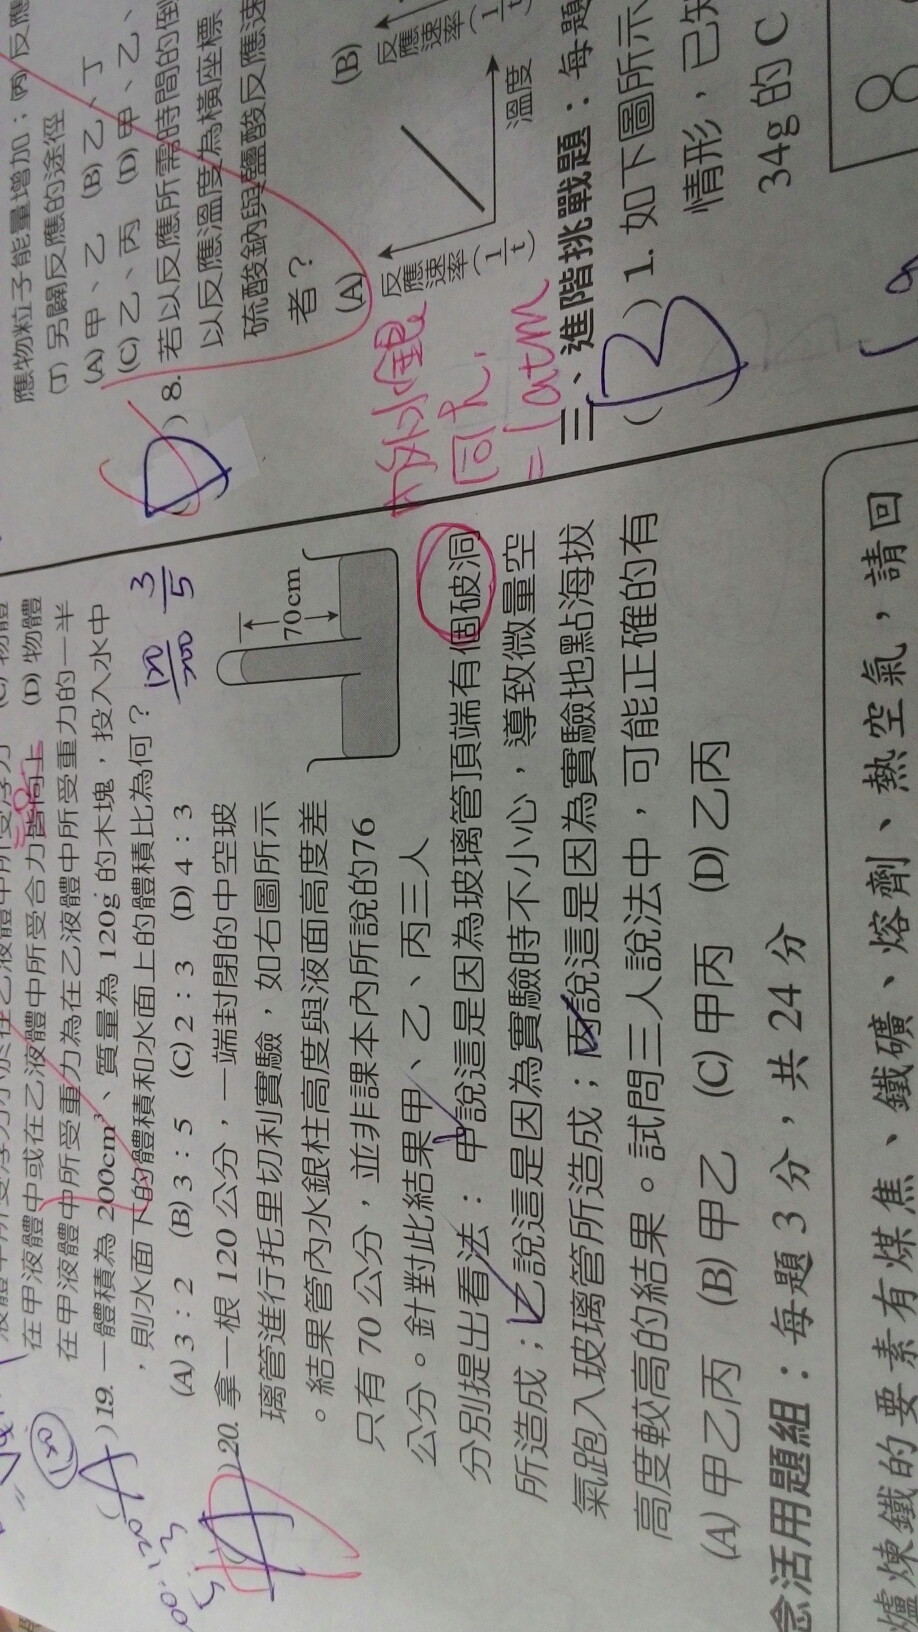 應物粒子能量增加；丙
(丁) 另闢反應的途徑
(A) 甲、乙 (B) 乙、丁
(C) 乙、丙 (D) 甲、乙、
) 8. 若以反應所需時間的倒
以反應溫度為橫座標
硫酸鈉與鹽酸反應速
者？
(A)
反應速率(1/t)
溫度
(B)
反應速率(1/t)
內外
同大
= 1atm
三、進階挑戰題：每題
( B ) 1. 如下圖所示
情形，已知
34g 的 C
8
在甲液體中或在乙液體中所受合力皆向上 (D) 物體
在甲液體中所受重力為在乙液體中所受重力的一半
( A ) 19. 一體積為 200cm³、質量為 120g 的木塊，投入水中
，則水面下的體積和水面上的體積比為何？
3/5
(A) 3：2 (B) 3：5 (C) 2：3 (D) 4：3
) 20. 拿一根 120 公分，一端封閉的中空玻
璃管進行托里切利實驗，如右圖所示
。結果管內水銀柱高度與液面高度差
只有 70 公分，並非課本內所說的76
公分。針對此結果甲、乙、丙三人
分別提出看法：甲說這是因為玻璃管頂端有個破洞
所造成；乙說這是因為實驗時不小心，導致微量空
氣跑入玻璃管所造成；丙說這是因為實驗地點海拔
高度較高的結果。試問三人說法中，可能正確的有
(A) 甲乙丙 (B) 甲乙 (C) 甲丙 (D) 乙丙
70cm
念活用題組：每題 3 分，共 24 分
爐煉鐵的要素有煤焦、鐵礦、熔劑、熱空氣，請回